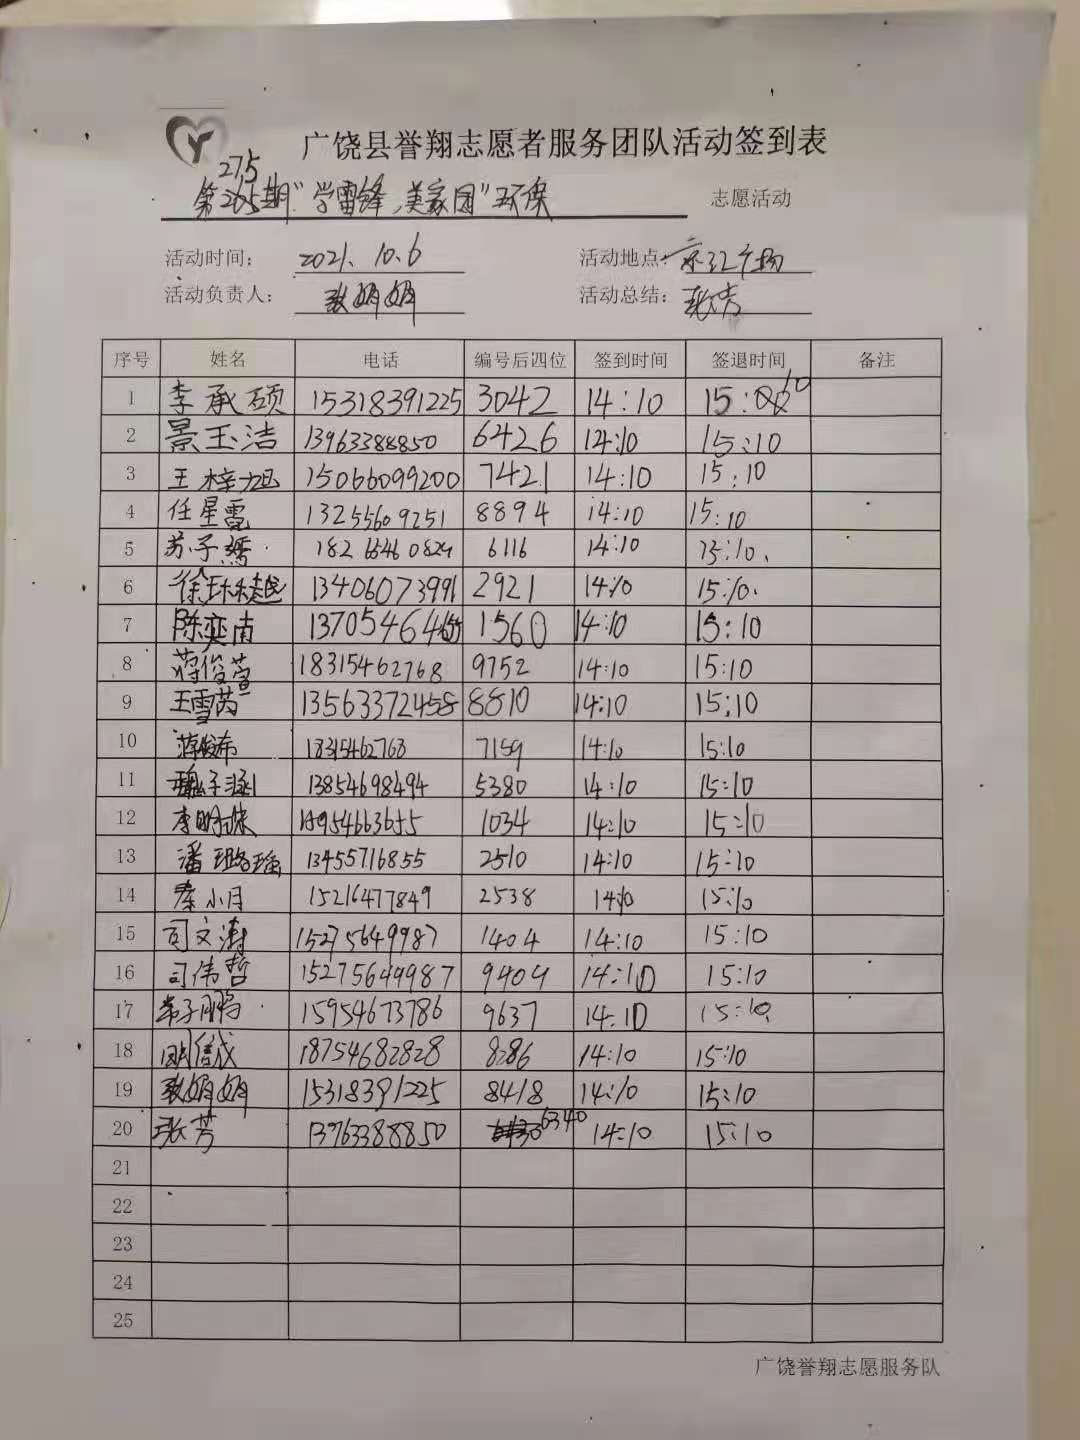 广饶县誉翔志愿者服务团队活动签到表
275
第265期"学雷锋、美家园"环保 志愿活动
活动时间： 2021.10.6 活动地点： 广场
活动负责人： 娟娟 活动总结： 张芳
序号 姓名 电话 编号后四位 签到时间 签退时间 备注
1 李承硕 15318391225 3042 14:10 15:10
2 景玉洁 13963388850 6426 14:10 15:10
3 王梓旭 15066099200 7421 14:10 15:10
4 任星霓 13255609251 8894 14:10 15:10
5 苏子 18266460829 6116 14:10 15:10.
6 徐 越 13406073991 2921 14:10 15:10.
7 陈奕南 13705464 1560 14:10 15:10
8 蒋俊萱 18315462768 9752 14:10 15:10
9 王雪芮 13563372458 8810 14:10 15:10
10 18315462768 7159 14:10 15:10
11 魏子涵 13854698494 5380 14:10 15:10
12 李明 1034 14:10 15:10
13 潘璐瑶 13455716855 2510 14:10 15:10
14 秦小月 15216477849 2538 14:10 15:10
15 司文涛 15275649987 1404 14:10 15:10
16 司伟哲 15275649987 9404 14:10 15:10
17 15954673786 9637 14:10 15:10
18 信成 18754682828 8286 14:10 15:10
19 娟娟 15318391225 8418 14:10 15:10
20 张芳 13963388850 6340 14:10 15:10
21
22
23
24
25
广饶誉翔志愿服务队